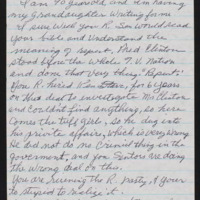 I am 90 years old and I'm having
my Granddaughter writing for me
I sure wish you R. Sen would read
your bible and understand the
meaning of repent. Pres. Clinton
stood before the whole T.V. Nation
and done that very thing. "Repent"
You R. hired Ken Starr, for 6 years
or that deal to investigate Mr. Clinton
and couldn't find anything, so here
comes the tuff girl, so he dug into
his private affairs, which is very wrong
He did not do no Crimnal thing in the
government, and you Senators are doing
the wrong deal on this.
You are ruining the R. party, & your
to stupid to realize it.